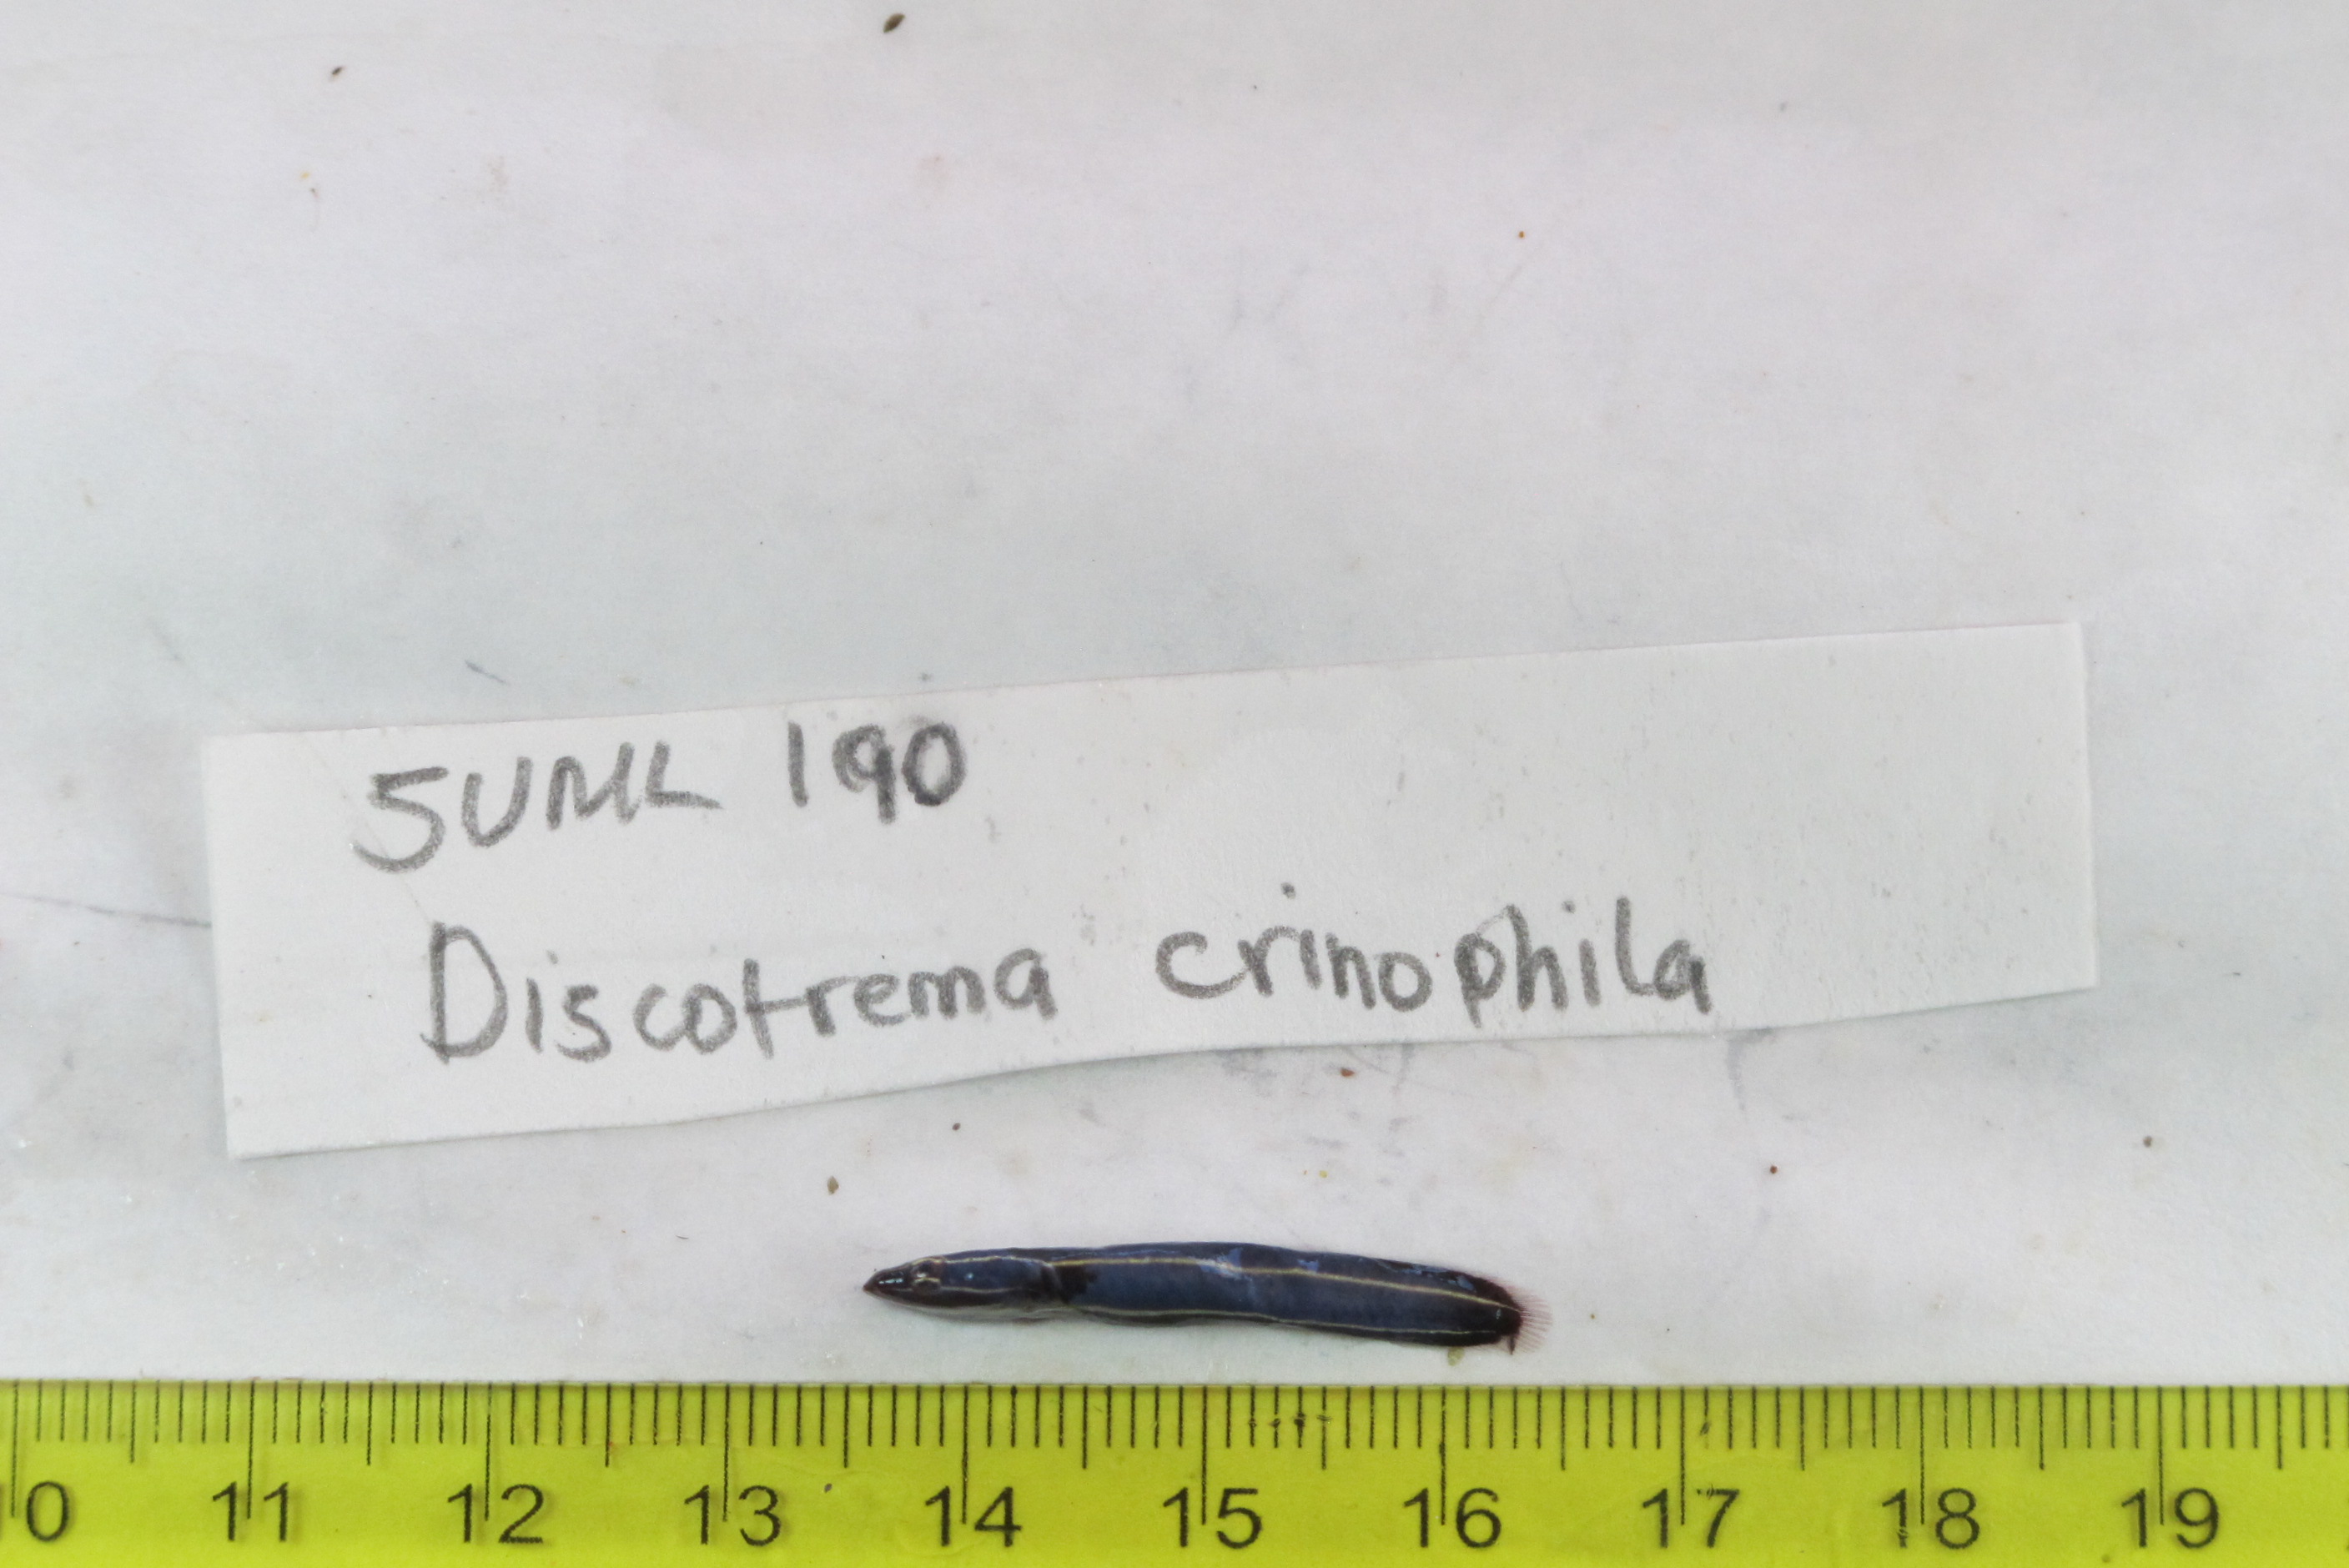 SUML 190
Discotrema crinophila
10 11 12 13 14 15 16 17 18 19